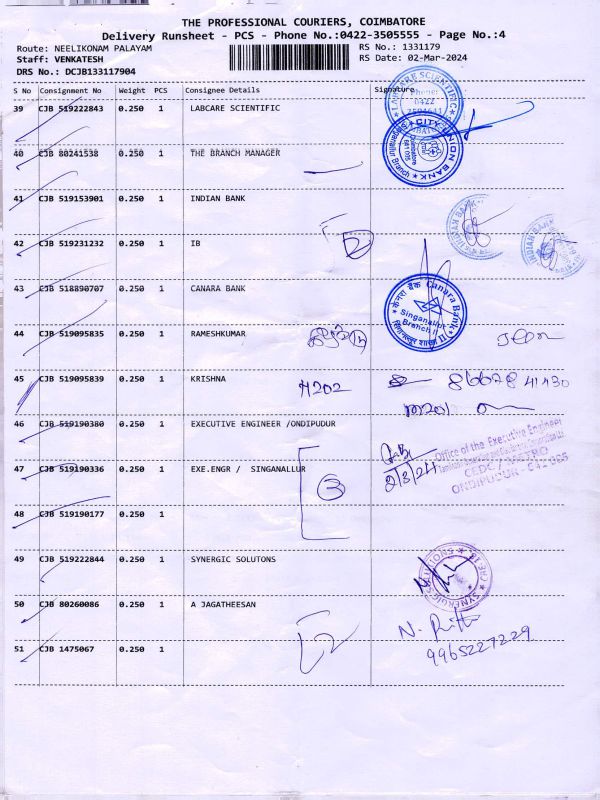 THE PROFESSIONAL COURIERS, COIMBATORE
Delivery Runsheet - PCS - Phone No.:0422-3505555 - Page No.:4
Route: NEELIKONAM PALAYAM
RS No.: 1331179
Staff: VENKATESH
RS Date: 02-Mar-2024
DRS No.: DCJB133117904
S No Consignment No Weight PCS Consignee Details Signature
39 CJB 519222843 0.250 1 LABCARE SCIENTIFIC
LABCARE SCIENTIFIC
Phone:
0422
40 CJB 80241538 0.250 1 THE BRANCH MANAGER
CITY UNION BANK
41 CJB 519153901 0.250 1 INDIAN BANK
INDIAN BANK
42 CJB 519231232 0.250 1 IB
2
43 CJB 518890707 0.250 1 CANARA BANK
केनरा बैंक Canara Bank
Singanallur
Branch II
44 CJB 519095835 0.250 1 RAMESHKUMAR
45 CJB 519095839 0.250 1 KRISHNA
H202
46 CJB 519190380 0.250 1 EXECUTIVE ENGINEER /ONDIPUDUR
Office of the Executive Engineer
CEDC / METRO
47 CJB 519190336 0.250 1 EXE.ENGR / SINGANALLUR
2/3/24
3
48 CJB 519190177 0.250 1
49 CJB 519222844 0.250 1 SYNERGIC SOLUTONS
50 CJB 80260086 0.250 1 A JAGATHEESAN
2
51 CJB 1475067 0.250 1
9965227229